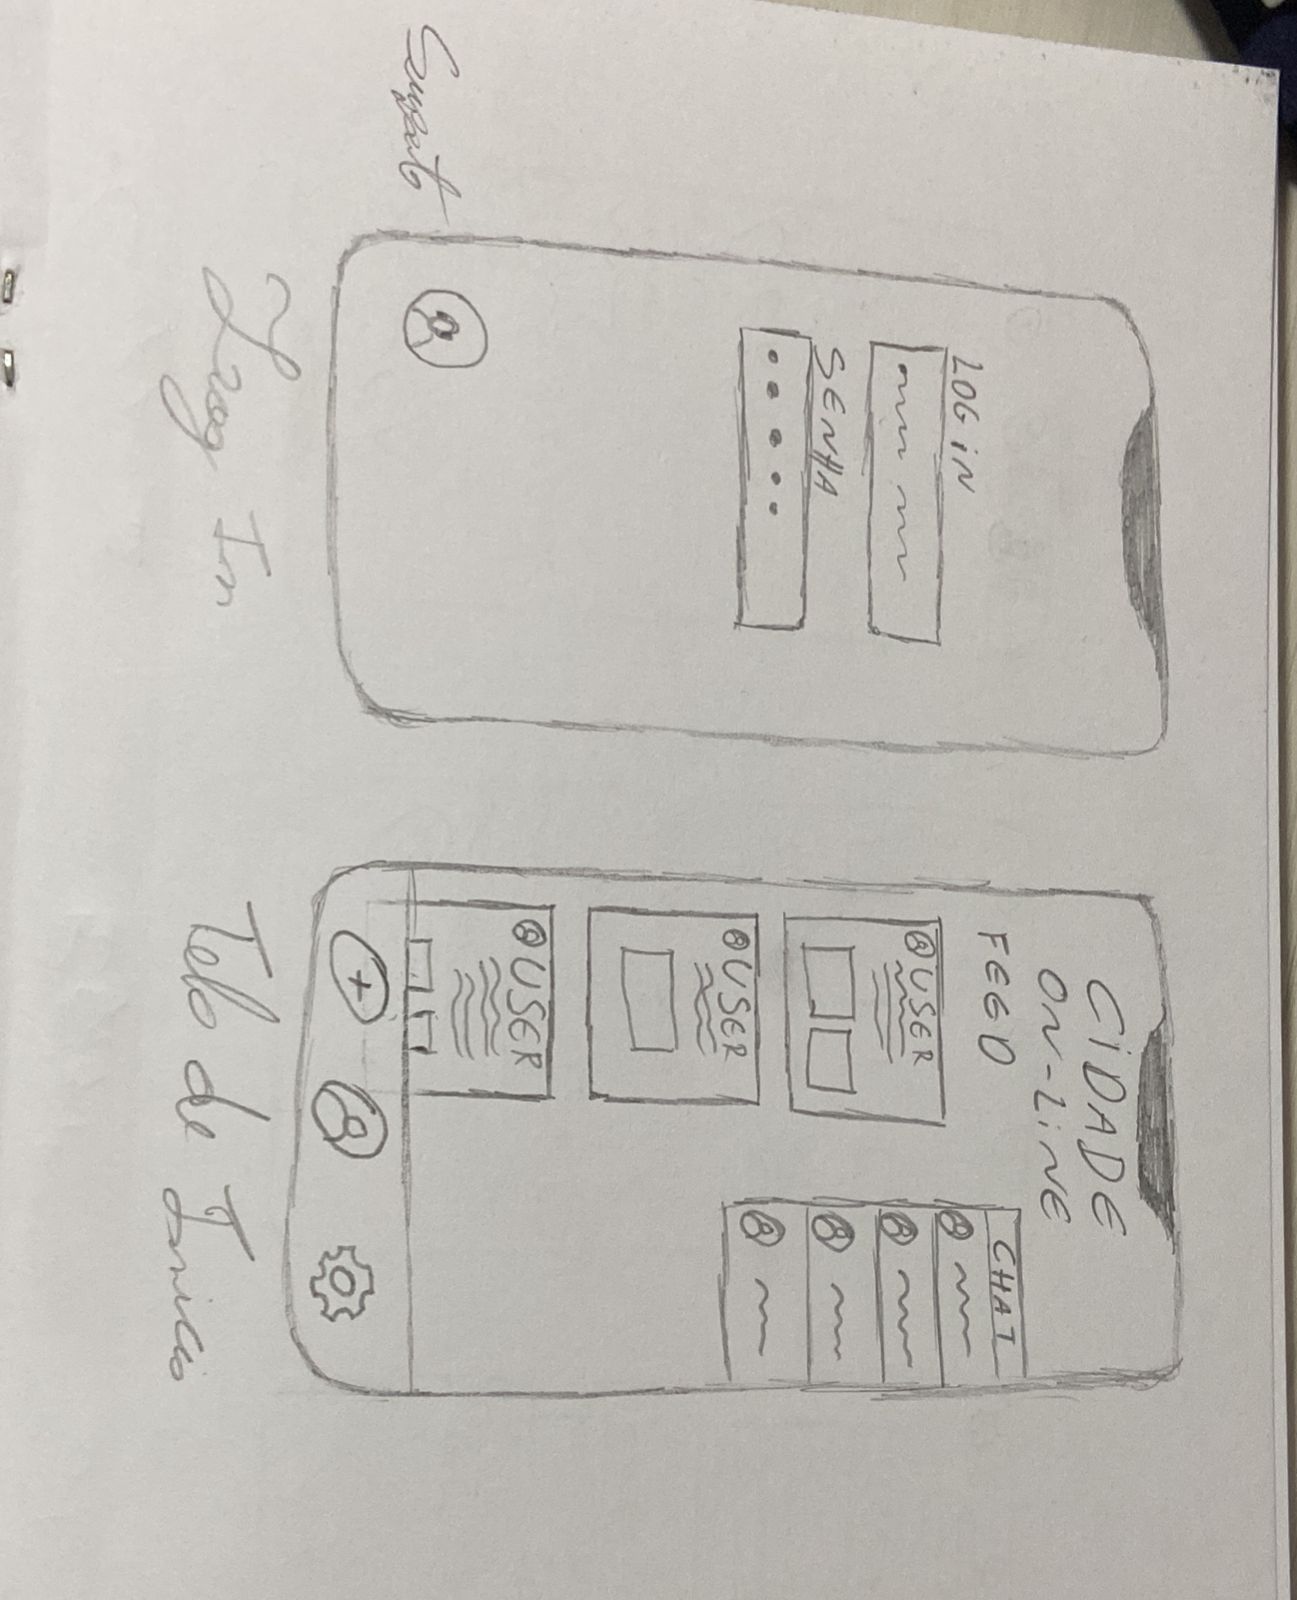 Suporte
LOGIN
SENHA
Loog In
CIDADE
ON-LINE
FEED
CHAT
USER
USER
USER
Tela de Inicio